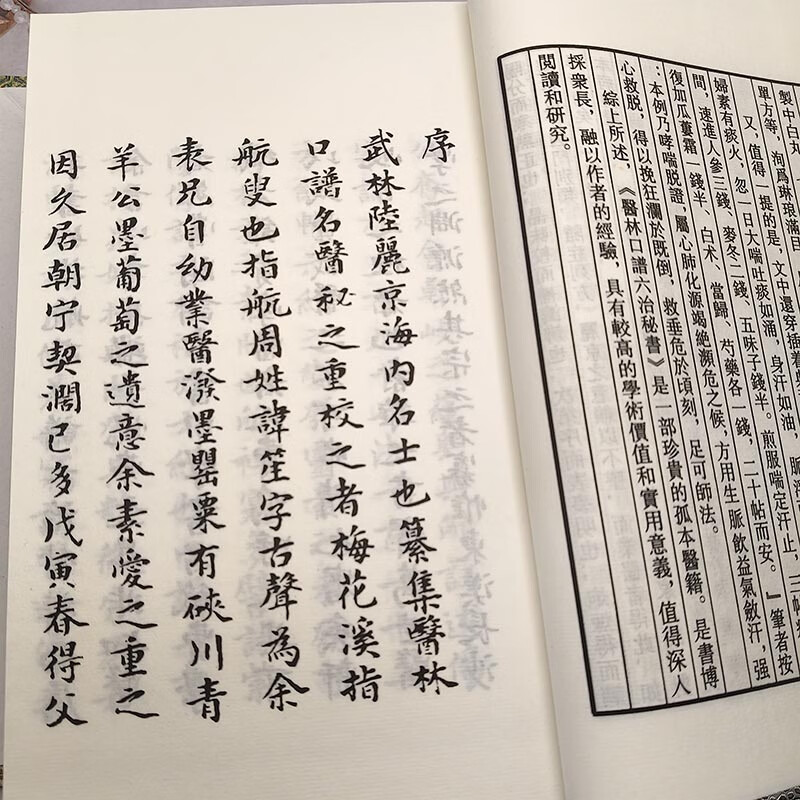 製中白丸
單方等，洵爲琳琅滿目
又，值得一提的是，文中還穿插着
婦素有痰火，忽一日大喘吐痰如涌，身汗如油，脈浮
間，速進人參三錢、麥冬二錢、五味子錢半。煎服喘定汗止，三帖
復加瓜蔞霜一錢半、白术、當歸、芍藥各一錢，二十帖而安。』筆者按
：本例乃哮喘脱證，屬心肺化源竭絶瀕危之候，方用生脈飲益氣斂汗，强
心救脱，得以挽狂瀾於既倒，救垂危於頃刻，足可師法。
綜上所述，《醫林口譜六治秘書》是一部珍貴的孤本醫籍。是書博
採衆長，融以作者的經驗，具有較高的學術價值和實用意義，值得深人
閱讀和研究。
序
武林陸麗京海内名士也纂集醫林
口譜名醫秘之重校之者梅花溪指
航叟也指航周姓諱笙字古聲為余
表兄自幼業醫潑墨罌粟有硤川青
羊公墨葡萄之遺意余素愛之重之
因久居朝宁契濶已多戊寅春得父